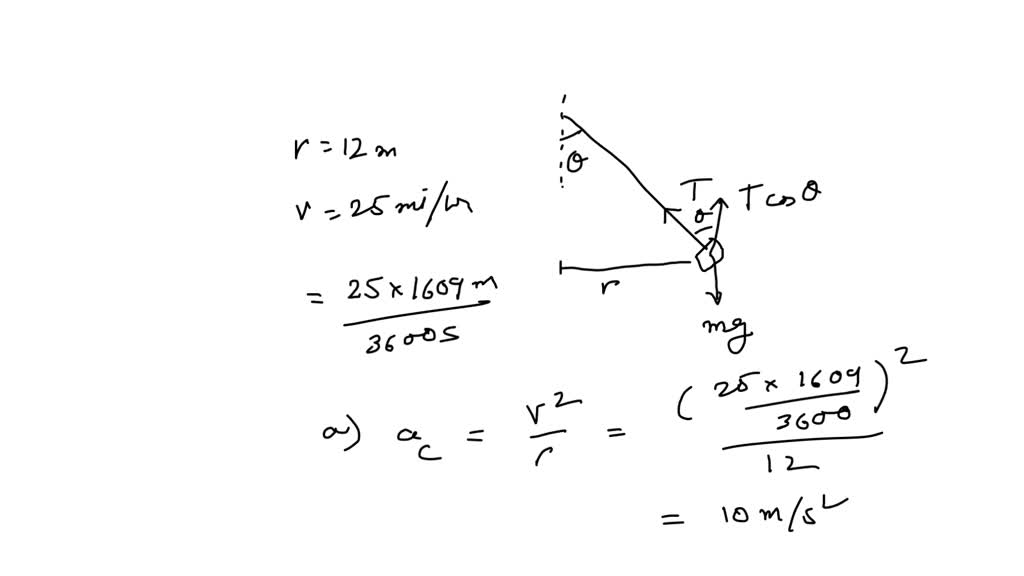 r = 12 m
v = 25 mi/hr
= 25 × 1609 m / 3600 s
θ
T
θ
T cos θ
r
mg
a) a_c = v² / r = (25 × 1609 / 3600)² / 12
= 10 m/s²